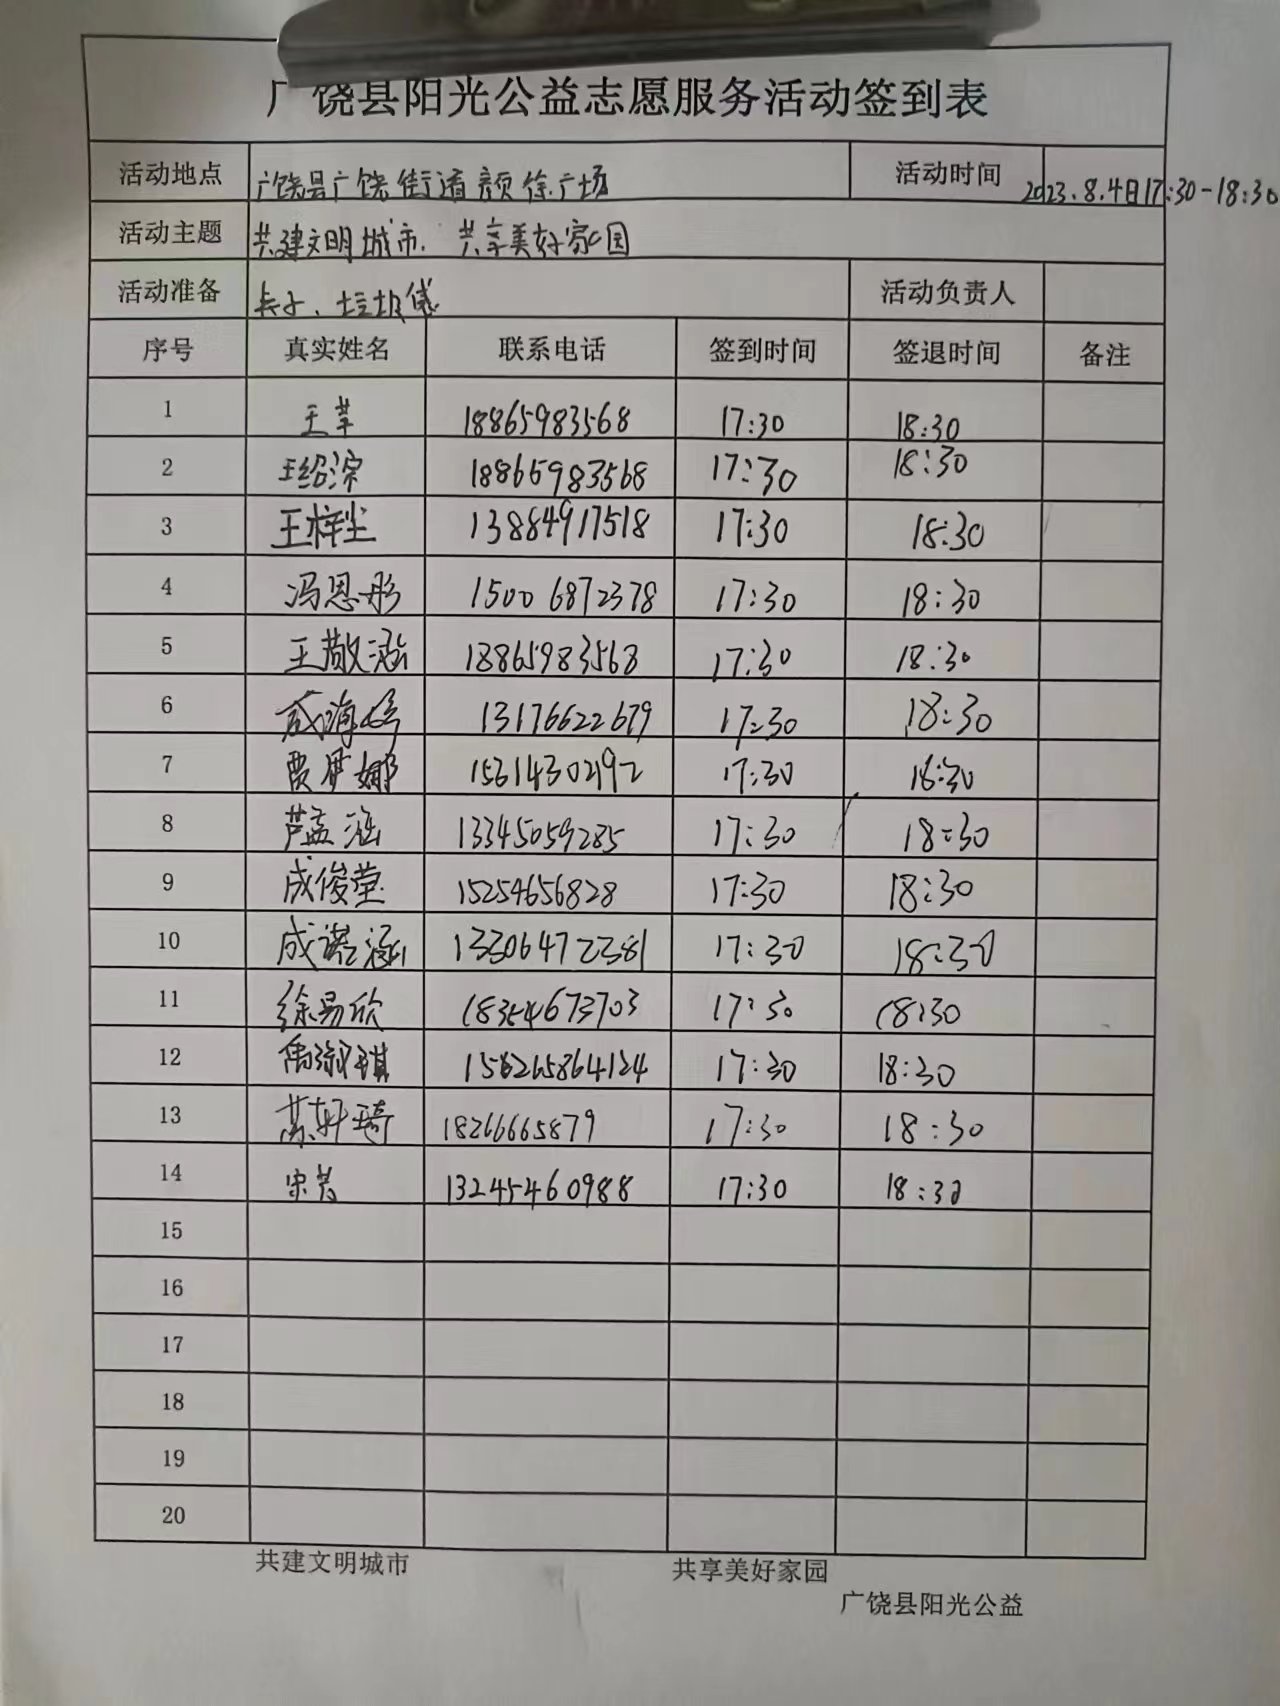 广饶县阳光公益志愿服务活动签到表
活动地点 广饶县广饶街道颜徐广场 活动时间 2023.8.4日17:30-18:30
活动主题 共建文明城市. 共享美好家园
活动准备 夹子、垃圾袋 活动负责人
序号 真实姓名 联系电话 签到时间 签退时间 备注
1 王苹 18865983568 17:30 18:30
2 王绍淙 18865983568 17:30 18:30
3 王梓尘 13884917518 17:30 18:30
4 冯恩彤 15006872378 17:30 18:30
5 王敬涵 18865983568 17:30 18:30
6 成海婷 13176622679 17:30 18:30
7 贾 娜 15314302192 17:30 18:30
8 芦孟涵 13345059285 17:30 18:30
9 成俊莹 15254656828 17:30 18:30
10 成诺涵 13306472381 17:30 18:30
11 徐易欣 18354673703 17:30 18:30
12 琪 156265864124 17:30 18:30
13 苏轩琦 18266665879 17:30 18:30
14 宋芳 13245460988 17:30 18:30
15
16
17
18
19
20
共建文明城市 共享美好家园
广饶县阳光公益